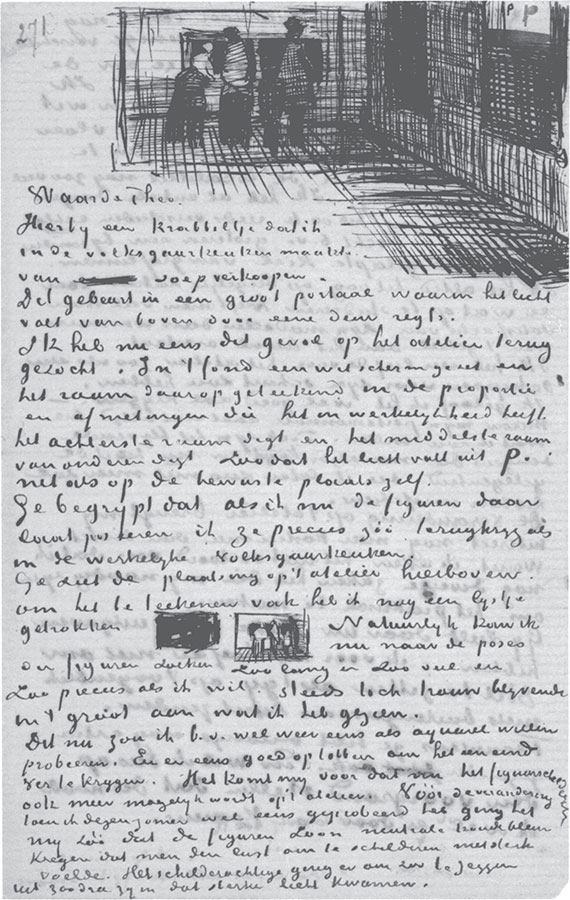 271
P P
Waarde Theo.
Hierby een krabbeltje dat ik
in de volksgaarkeuken maakte
van soep verkoopen.
Dit gebeurt in een groot portaal waarin het licht
valt van boven door eene deur regts.
Ik heb nu eens dit geval op het atelier terug
gezocht. In 't fond een wit scherm gezet en
het raam daarop geteekend in de proportie
en afmetingen die het in werkelijkheid heeft.
het achterste raam digt en het middelste raam
van onderen digt Zoo dat het licht valt uit P.
net als op de bewuste plaats zelf.
Ge begrypt dat als ik nu de figuren daar
laat poseren ik ze precies zóó terugkryg als
in de werkelyke volksgaarkeuken.
Ge ziet de plaatsing op 't atelier hierboven.
om het te teekenen vak heb ik nog een lystje
getrokken Natuurlyk kan ik
nu naar de poses
der figuren zoeken zoo lang en zoo veel en
zoo precies als ik wil. steeds toch trouw blyvende
in 't groot aan wat ik heb gezien.
Dit nu zou ik b.v. wel weer eens als aquarel willen
probeeren. En er eens goed op tobben om het een eind
ver te krygen. Het komt my voor dat nu het figuurschilderen
ook meer mogelyk wordt op 't atelier. Vóór de verandering
toen ik dezen zomer wel eens geprobeerd heb ging het
my zóó dat de figuren zoon neutrale
kregen dat men den lust om te schilderen niet sterk
voelde. Het schilderachtige ging er om zoo te zeggen
uit zoodra zy in dat sterke licht kwamen.